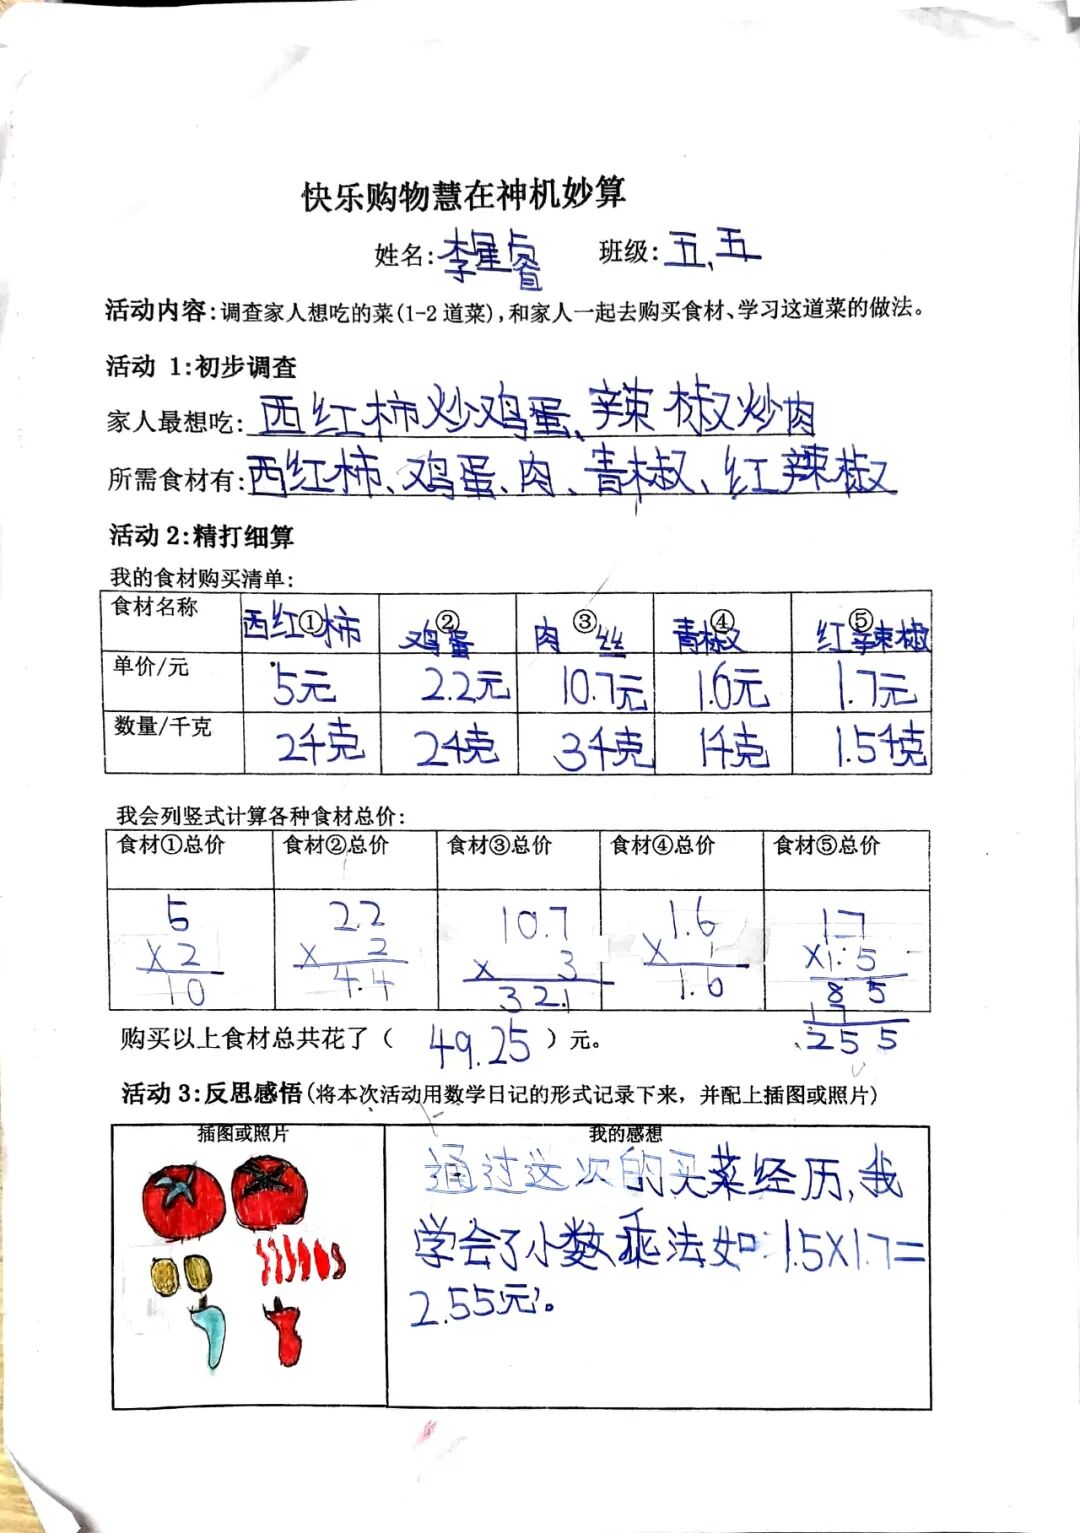 快乐购物慧在神机妙算
姓名:李星睿 班级:五、五
活动内容:调查家人想吃的菜(1-2道菜),和家人一起去购买食材、学习这道菜的做法。
活动 1:初步调查
家人最想吃:西红柿炒鸡蛋、辣椒炒肉
所需食材有:西红柿、鸡蛋、肉、青椒、红辣椒
活动2:精打细算
我的食材购买清单:
食材名称 ①西红柿 ②鸡蛋 ③肉丝 ④青椒 ⑤红辣椒
单价/元 5元 2.2元 10.7元 1.6元 1.7元
数量/千克 2千克 2千克 3千克 1千克 1.5千克
我会列竖式计算各种食材总价:
食材①总价 食材②总价 食材③总价 食材④总价 食材⑤总价
5 2.2 10.7 1.6 1.7
×2 × 2 × 3 × 1 ×1.5
10 4.4 32.1 1.6 8 5
1 7
2.5 5
购买以上食材总共花了( 49.25 )元。
活动3:反思感悟(将本次活动用数学日记的形式记录下来,并配上插图或照片)
插图或照片 我的感想
通过这次的买菜经历,我
学会了小数乘法如:1.5×1.7=
2.55元。